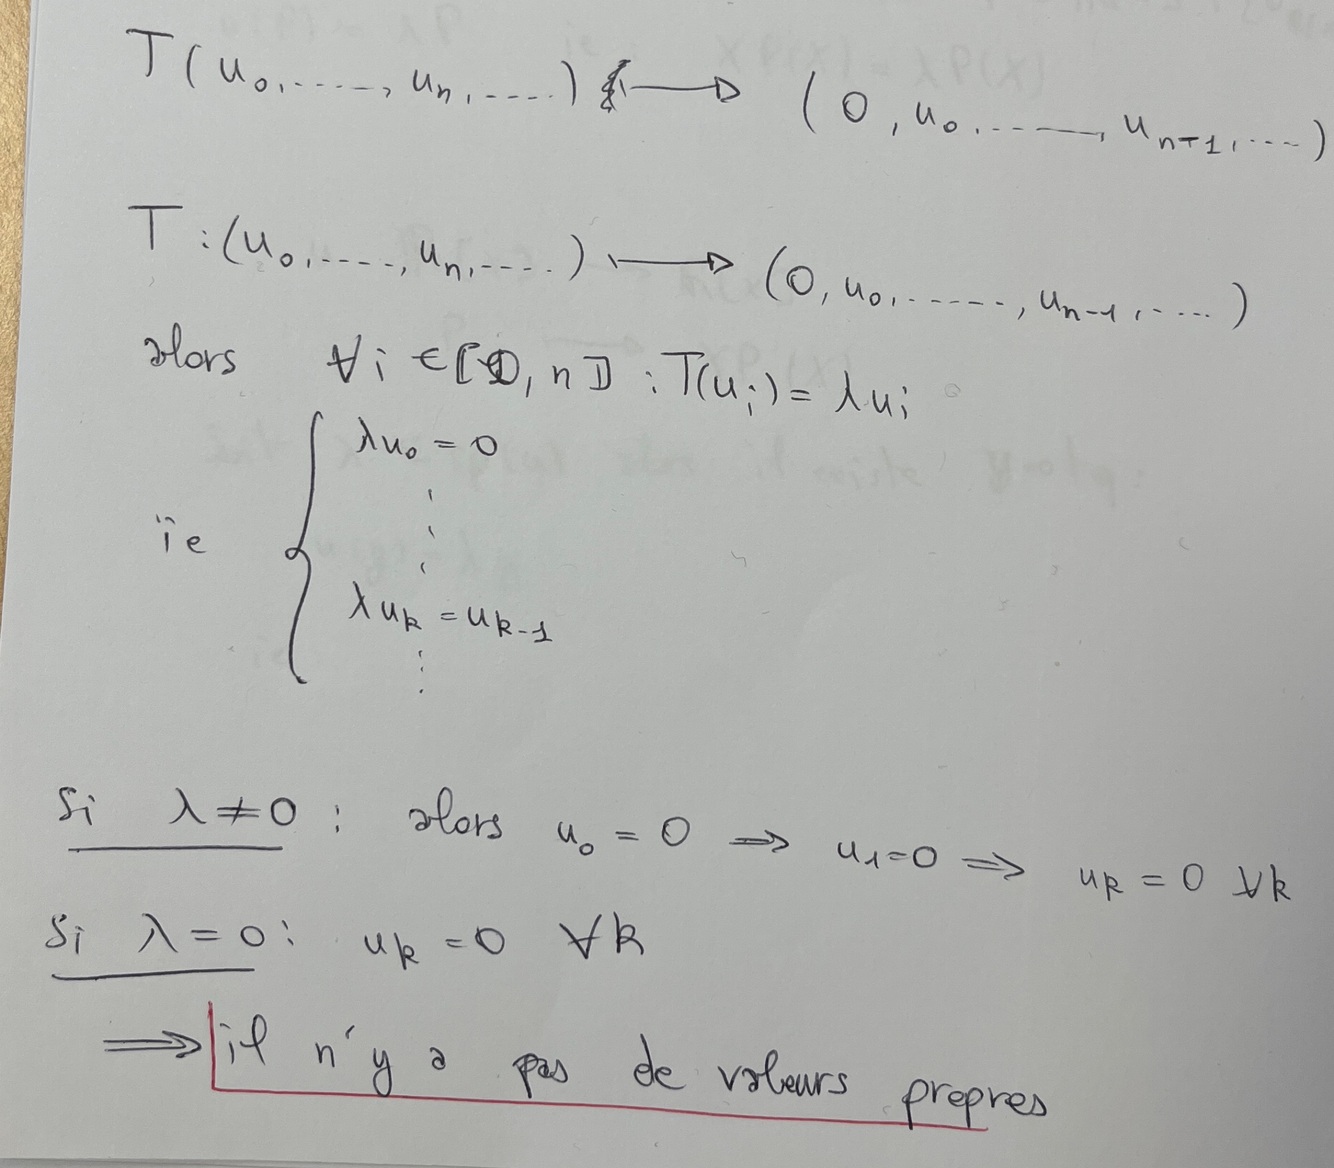 T(u₀,....., uₙ,....) ⟼ (0, u₀.....,  uₙ₊₁,....)
T : (u₀,....., uₙ,....) ⟼ (0, u₀,....., uₙ₋₁,....)
alors ∀i ∈ ⟦0, n⟧ : T(uᵢ) = λuᵢ
λu₀ = 0
⋮
ie
λuₖ = uₖ₋₁
⋮
Si λ ≠ 0 : alors u₀ = 0 ⟹ u₁=0 ⟹ uₖ = 0 ∀k
Si λ = 0 : uₖ = 0 ∀k
⟹ il n'y a pas de valeurs propres